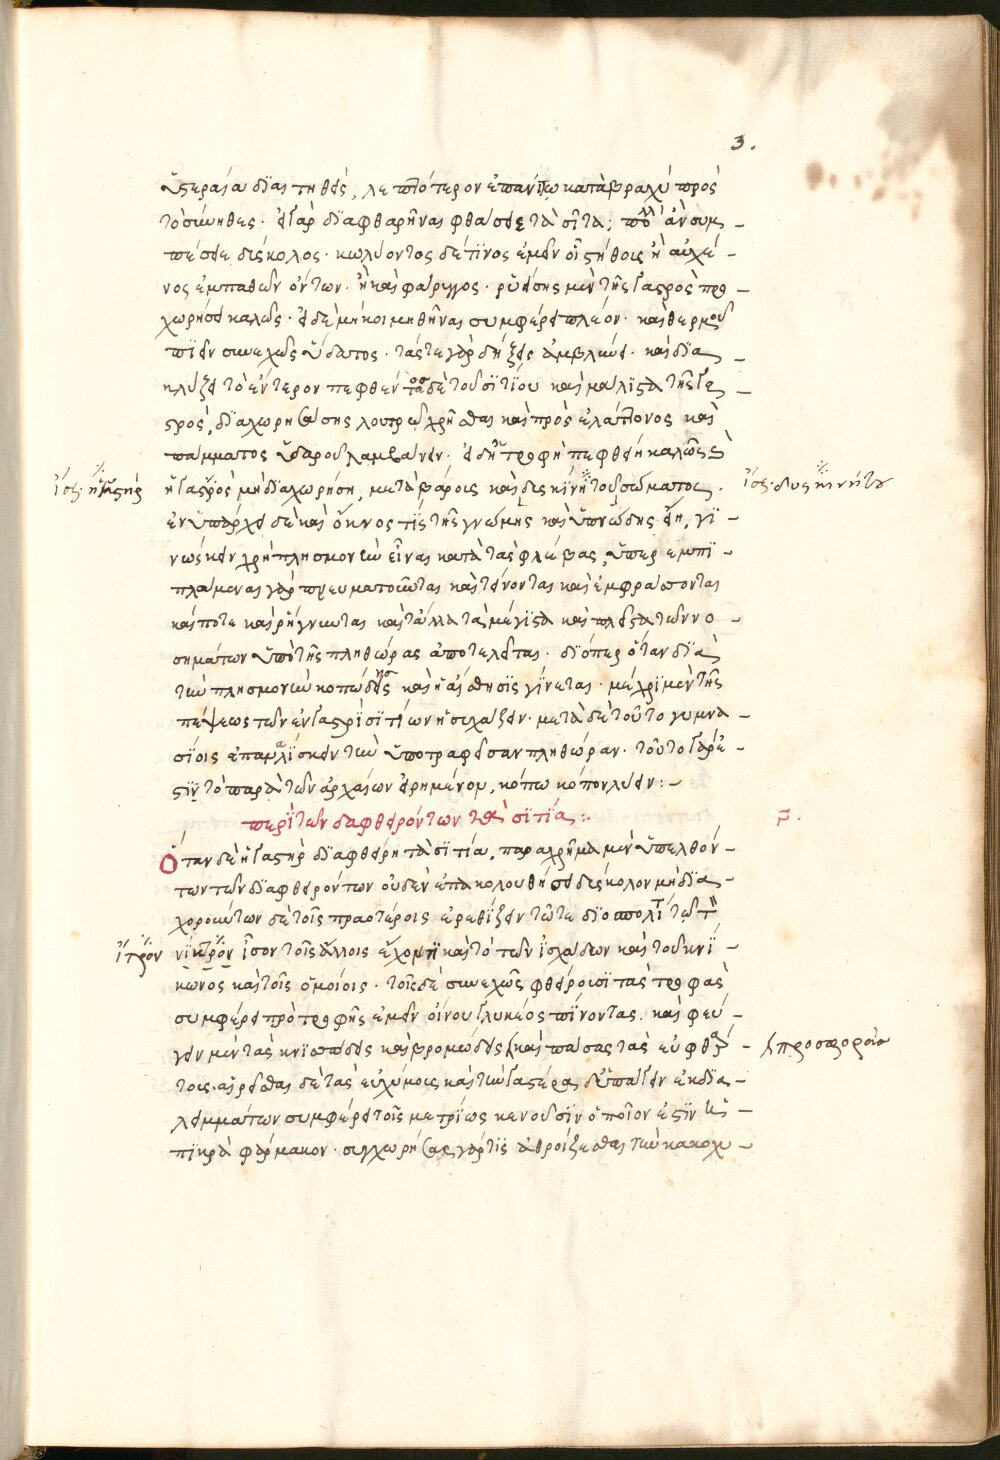 3.
ὑστεραίᾳ διαιτηθεὶς, λεπτότερον ἐπανίτω καταβραχὺ πρὸς
τὸ σύνηθες· εἰ γὰρ διαφθαρῆναι φθάσει τὰ σῖτα; πολλὰ ἂν συμ-
πέσοι δύσκολος· κωλύοντος δέ τινος ἐμεῖν οἷς στήθοις ἢ αὐχέ-
νος ἐμπαθῶν ὄντων· ἢ καὶ φάρυγγος· ῥυείσης μὲν τῆς γαστρὸς προ-
χωρήσει καλῶς· εἰ δὲ μὴ κοιμηθῆναι συμφέρει πλέον· καὶ θερμοῦ
πιεῖν συνεχῶς ὕδατος· τάς τε γὰρ δήξεις ἀμβλύνει· καὶ δια-
κλύζει τὸ ἔντερον πεφθέντος δὲ τοῦ σιτίου καὶ μάλιστα τῆς γα-
στρὸς, διαχωρησάσης λουτρῷ χρῆσθαι καὶ πρὸς ἐλάττονος καὶ
πώματος ὑδαροῦ λαμβάνειν· εἰ δ' ἡ τροφὴ πεφθείη καλῶς
ἴσ: ἡ γαστὴρ
ἡ γαστρὸς μὴ διαχωρήση, μετὰ βάρους καὶ δὶς κίνητοῦ σώματος.
ἴσ: δυσκινήτου
ἐνυπάρχει δὲ καὶ ὄκνος τίς τῆς γνώμης καὶ ὑπνώδης εἴη, γι-
νώσκειν χρὴ πλησμονὴν εἶναι κατὰ τὰς φλέβας, ὑπερεμπι-
πλάμεναι γὰρ πνευματοῦνται καὶ τείνονται καὶ ἐμφράττονται
καί ποτε καὶ ῥήγνυνται καὶ τἄλλα τὰ μέγιστα καὶ πλεῖστα τῶν νο-
σημάτων ὑπὸ τῆς πληθώρας ἀποτελεῖται· διόπερ ὅταν διὰ
τὴν πλησμονὴν κοπώδης καὶ ἡ αἴσθησις γίνεται· μέχρι μὲν τῆς
πέψεως τῶν ἐν γαστρὶ σιτίων ἡσυχάζειν· μετὰ δὲ τοῦτο γυμνα-
σίοις ἐπαναλίσκειν τὴν ὑποτραφεῖσαν πληθώραν· τοῦτο γάρ ἐ-
στιν τὸ παρὰ τῶν ἀρχαίων εἰρημένον, κόπῳ κόπον λύειν:-
περὶ τῶν δαφθειρόντων τὰ σιτία:
β.
Ὅταν δὲ ἡ γαστὴρ διαφθείρη τὰ σιτία, παραχρῆμα μὲν ὑπελθόν-
των τῶν διαφθερόντων οὐδὲν ἐπακολουθήσει δύσκολον μὴ δια-
χορούντων δὲ τοῖς πραοτέροις ἐρεθίζειν τότε διὸ ἀπολιτῶν τι
ἴτρον
νίκτρὸν ἴσον τοῖς ἄλλοις ἔχον τι καὶ τὸ τῶν ἰσχάδων καὶ τοῦ κνί-
κωνος καὶ τοῖς ὁμοίοις· τοῖς δὲ συνεχῶς φθείρουσι τὰς τροφὰς
συμφέρει πρὸ τροφῆς ἐμεῖν οἴνου γλυκέος πίνοντας· καὶ φεύ-
γειν μὲν τὰς κνισσώδεις καὶ βρομώδεις καὶ πάσας τὰς εὐφθάρ-
προσφορὰς
τοις· αἱρεῖσθαι δὲ τὰς εὐχύμοις καὶ τὴν γαστέρα δ' ὑπάγειν ἐκ δια-
λειμμάτων συμφέρει τοῖς μετρίως κενοῦσιν ὁποῖον ἐστὶν ἱε-
πικρὰ φάρμακον· συγχωρήσας γάρ τις ἀθροίζεσθαι τὴν κακοχυ-